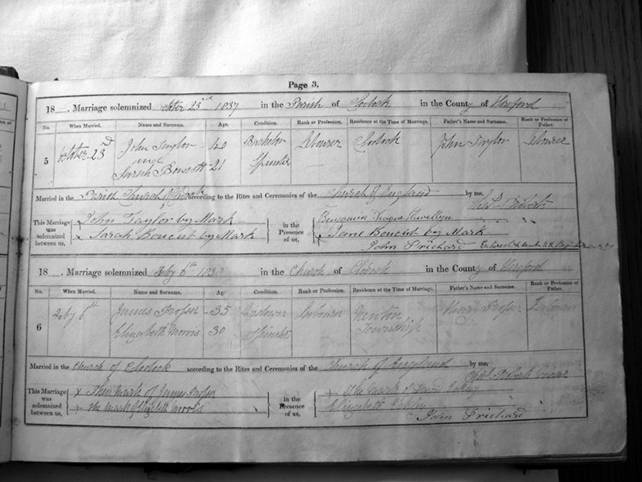 Page 3.
18 . Marriage solemnized October 23rd 1837 in the Parish of Clodock in the County of Hereford
No. When Married. Name and Surname. Age. Condition. Rank or Profession. Residence at the Time of Marriage. Father's Name and Surname. Rank or Profession of Father.
5 October 23rd John Taylor 40 Bachelor Labourer Clodock John Taylor Labourer
and
Sarah Bowcott 21 Spinster
Married in the Parish Church according to the Rites and Ceremonies of the Church of England by me,
This Marriage was solemnized between us, John Taylor by Mark
Sarah Bowcut by Mark
in the Presence of us, Benjamin Llewellyn
Jane Bowcut by Mark
John Prichard
18 . Marriage solemnized Feby 6th in the Church of Clodock in the County of Hereford
No. When Married. Name and Surname. Age. Condition. Rank or Profession. Residence at the Time of Marriage. Father's Name and Surname. Rank or Profession of Father.
6 Feby 6th James Prosser 35 Widower Labourer Newton Prosser
Elizabeth Morris 30 Spinster Township
Married in the Church of Clodock according to the Rites and Ceremonies of the Church of England by me,
This Marriage was solemnized between us, x The mark of James Prosser
x The mark of Morris
in the Presence of us, The mark of
Elizabeth
John Prichard